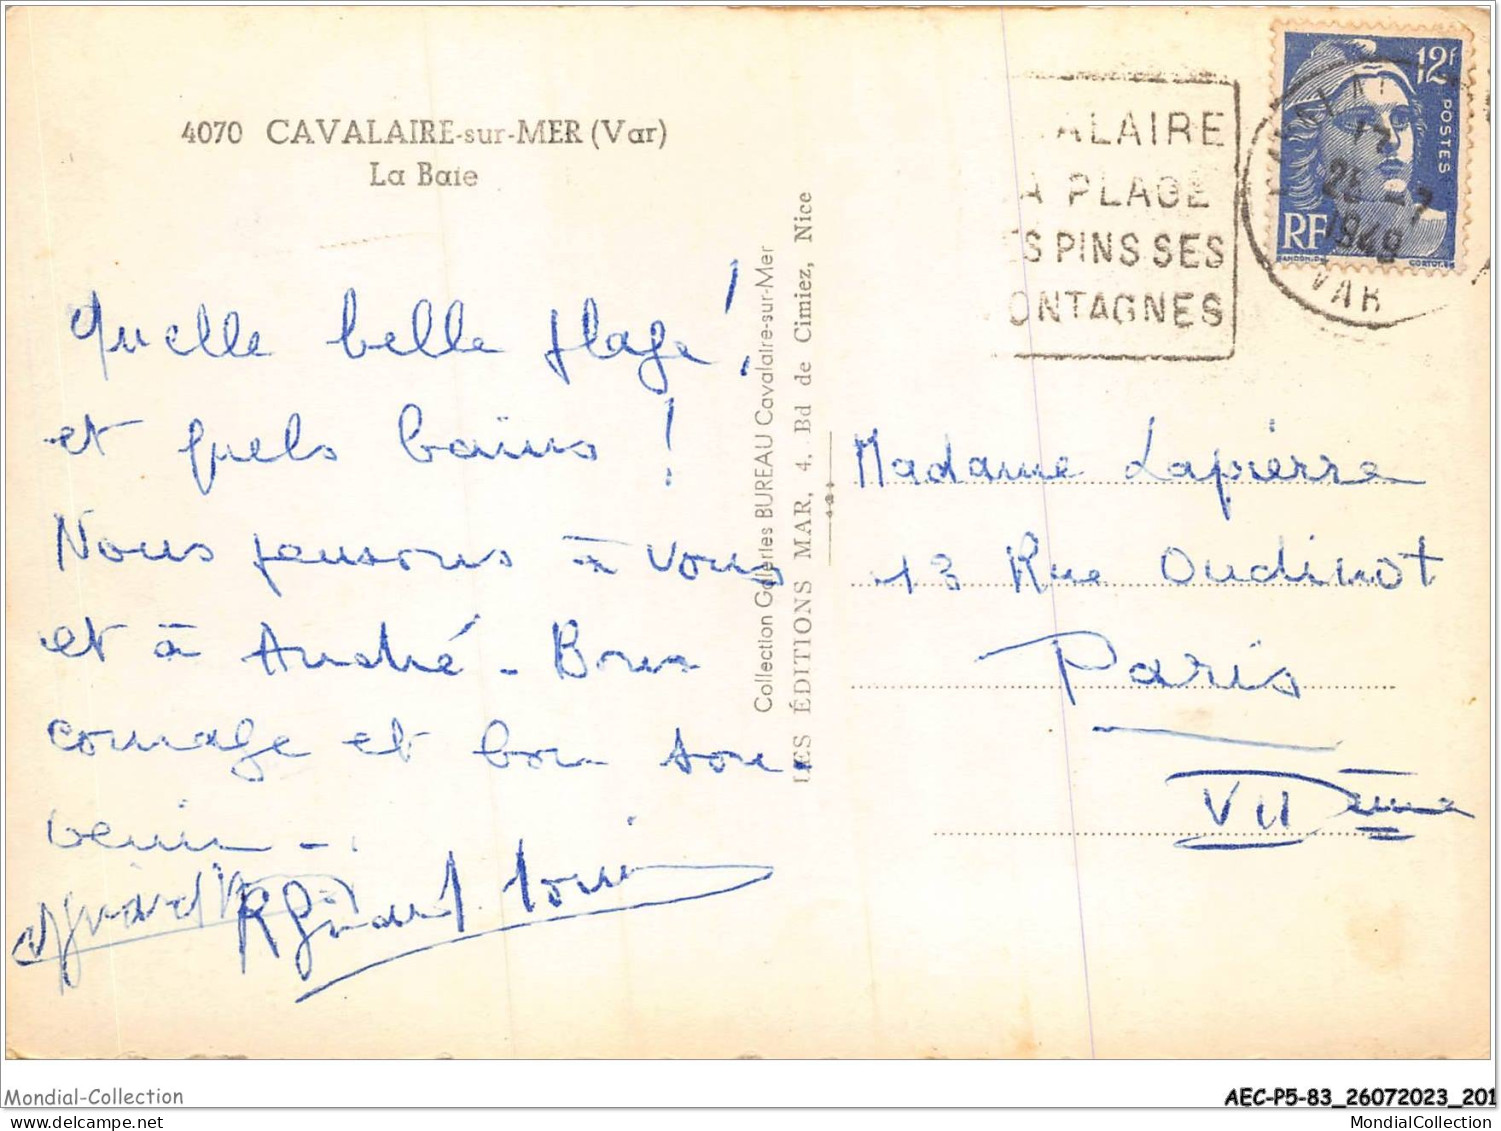 4070 CAVALAIRE-sur-MER (Var)
La Baie
Quelle belle plage !
et quels bains !
Nous pensons à vous
et à André - Bon
courage et bon sou-
venir -
Collection Galeries BUREAU Cavalaire-sur-Mer
LES ÉDITIONS MAR, 4, Bd de Cimiez, Nice
ALAIRE
A PLAGE
ES PINS SES
ONTAGNES
12F
POSTES
RF
1949
VAR
Madame Lapierre
13 Rue Oudinot
Paris
VII ème
Mondial-Collection
AEC-P5-83_26072023_201
MondialCollection